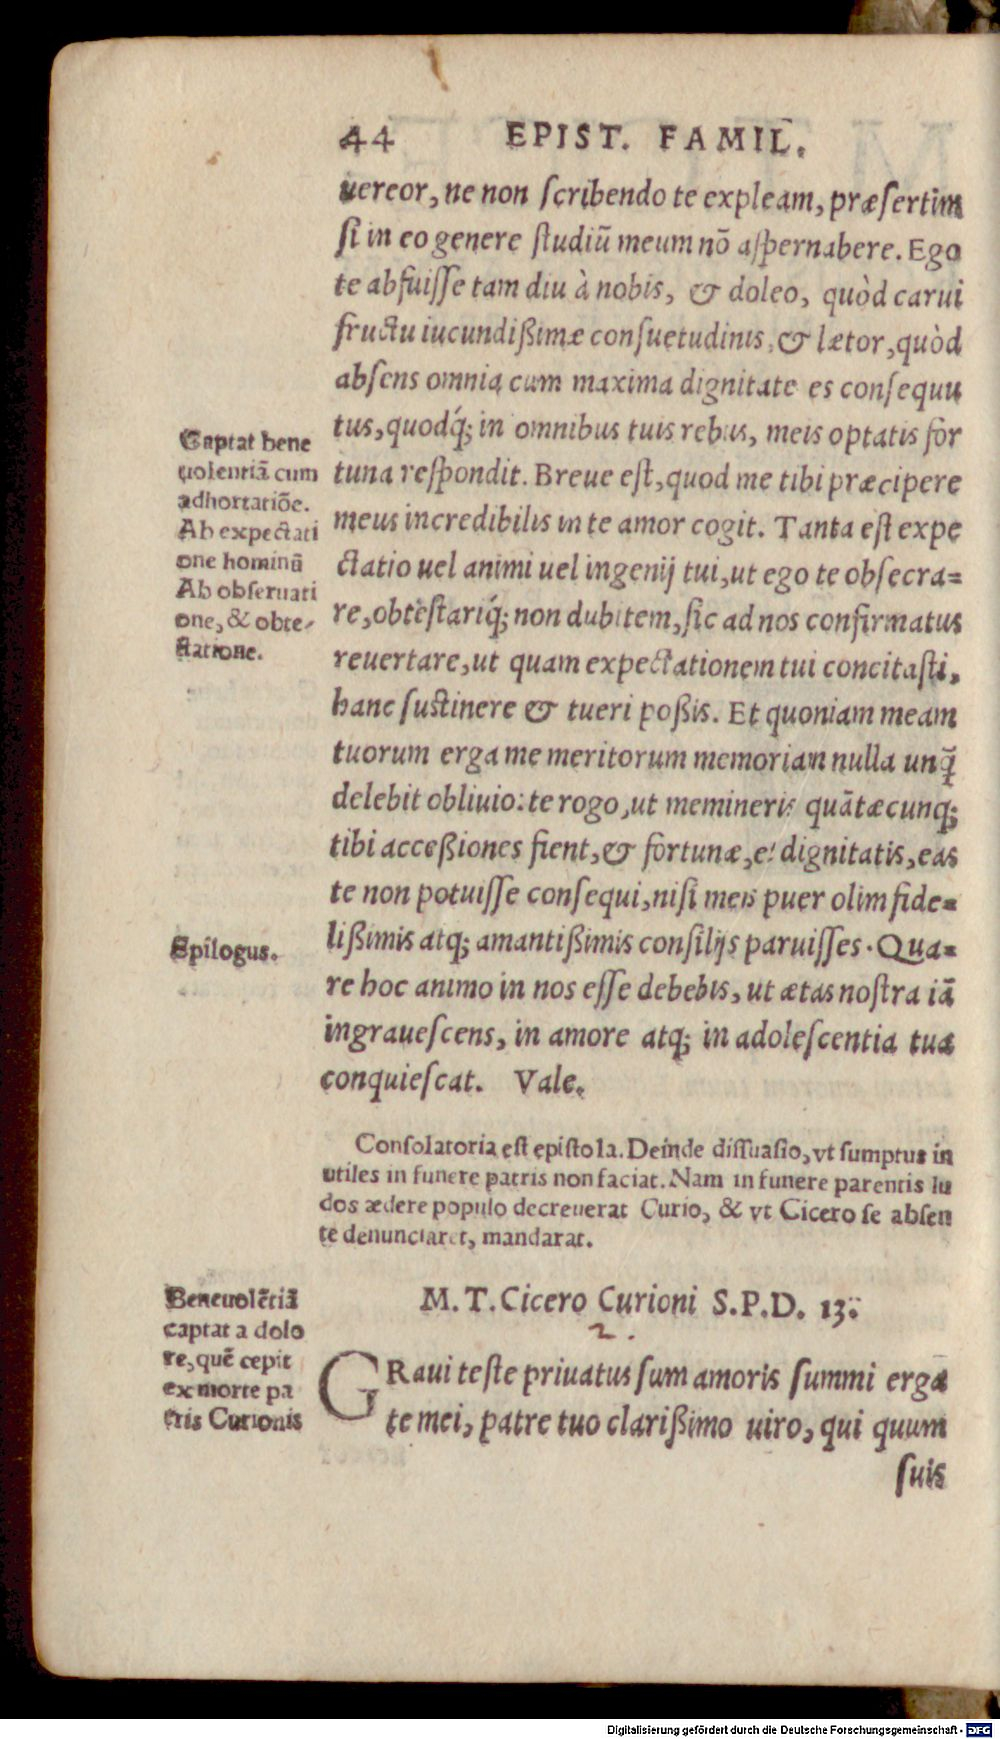 44 EPIST. FAMIL.
uereor, ne non scribendo te expleam, præsertim
si in eo genere studiũ meum nõ aspernabere. Ego
te abfuisse tam diu à nobis, & doleo, quòd carui
fructu iucundißimæ consuetudinis, & lætor, quòd
absens omnia cum maxima dignitate es consequu
tus, quodq́; in omnibus tuis rebus, meis optatis for
tuna respondit. Breue est, quod me tibi præcipere
meus incredibilis in te amor cogit. Tanta est expe
ctatio uel animi uel ingenij tui, ut ego te obsecra=
re, obtestariq́; non dubitem, sic ad nos confirmatus
reuertare, ut quam expectationem tui concitasti,
hanc sustinere & tueri poßis. Et quoniam meam
tuorum erga me meritorum memoriam nulla unq̃
delebit obliuio: te rogo, ut memineris quãtæcunq;
tibi acceßiones fient, & fortunæ, et dignitatis, eas
te non potuisse consequi, nisi meis puer olim fide=
lißimis atq; amantißimis consilijs paruisses. Qua=
re hoc animo in nos esse debebis, ut ætas nostra iã
ingrauescens, in amore atq; in adolescentia tua
conquiescat. Vale.
Captat bene
uolentiã cum
adhortatiõe.
Ab expectati
one hominũ
Ab obseruati
one, & obte-
statione.
Epilogus.
Consolatoria est epistola. Deinde dissuasio, vt sumptus in
utiles in funere patris non faciat. Nam in funere parentis lu
dos ædere populo decreuerat Curio, & vt Cicero se absen
te denunciaret, mandarat.
M. T. Cicero Curioni S. P. D. 13.
2.
Beneuolẽtiã
captat a dolo
re, quẽ cepit
ex morte pa
tris Curionis
GRaui teste priuatus sum amoris summi erga
te mei, patre tuo clarißimo uiro, qui quum
suis
Digitalisierung gefördert durch die Deutsche Forschungsgemeinschaft - DFG